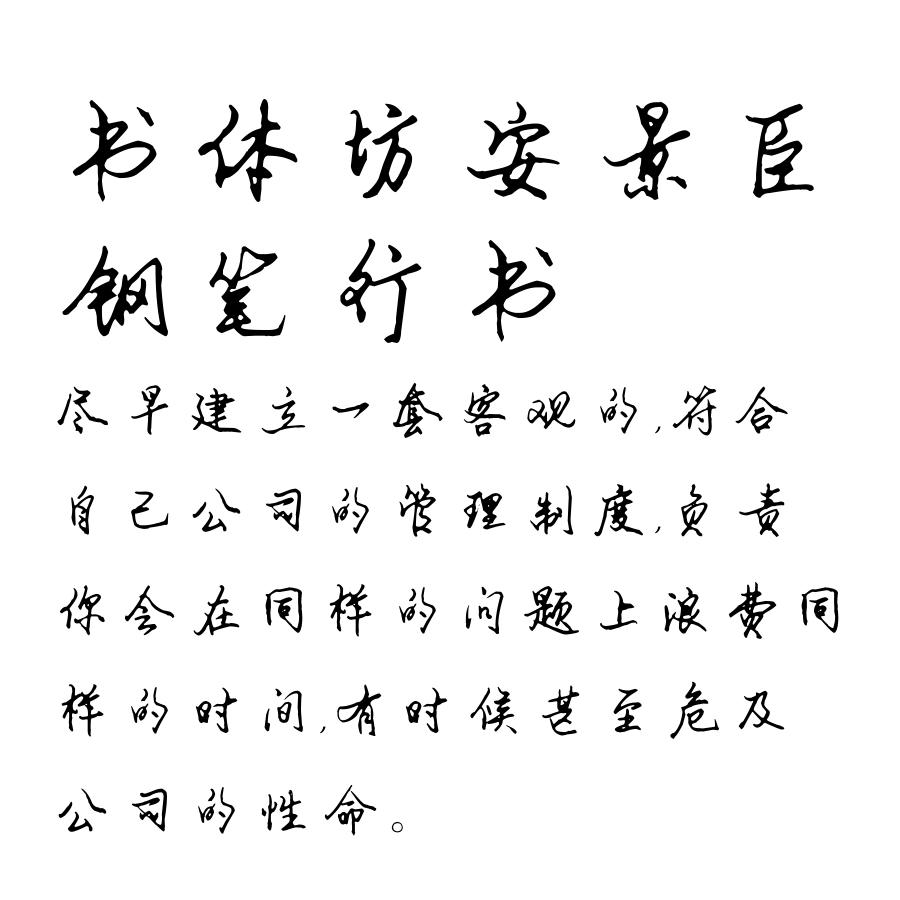 书体坊安景臣
钢笔行书
尽早建立一套客观的,符合
自己公司的管理制度,负责
你会在同样的问题上浪费同
样的时间,有时候甚至危及
公司的性命。